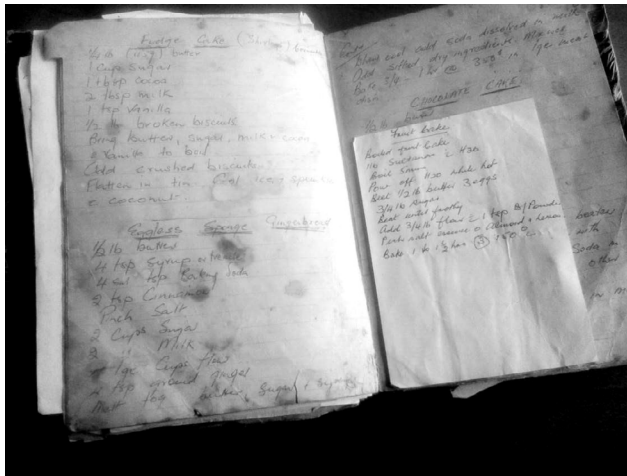 Fudge Cake
½ lb butter
1 Cup Sugar
1 tbsp cocoa
2 tbsp milk
1 tsp vanilla
½ lb broken biscuits
Bring butter, sugar, milk & cocoa,
& Vanilla to boil.
Add crushed biscuits
Flatten in tin. Cool, ice,
& coconut.
Eggless Sponge Gingerbread
½ lb butter
4 tsp syrup
4 tsp Baking Soda
2 tsp Cinnamon
Pinch Salt
2 Cups Sugar
2 " Milk
4 lge Cups flour
2 tsp ground ginger
Melt tog butter, Sugar & Syrup
Blend well add soda dissolved in
Add sifted dry ingredients.
Bake 3/4 - 1 hr @ 350° in lge
CHOCOLATE CAKE
½ lb
Fruit Cake
Boiled fruit Cake
1 lb Sultanas & H2O
Boil 5 min
Pour off H2O while hot
Beat ½ lb butter 3 eggs
3/4 lb sugar
Beat until frothy
Add 3/4 lb flour & 1 tsp B/Powd.
Pinch salt essence of almond & lemon
Bake 1 to 1½ hrs @ 350°
with
Soda in
other